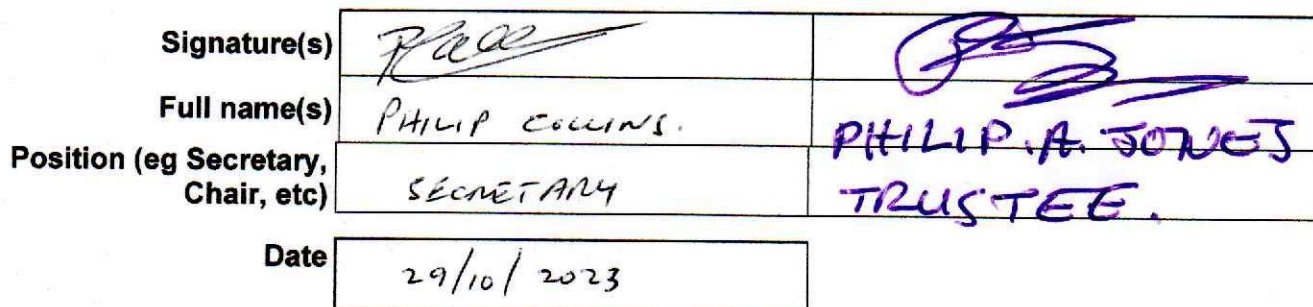 Signature(s)
Full name(s) PHILIP COLLINS. PHILIP. A. JONES
Position (eg Secretary,
Chair, etc) SECRETARY TRUSTEE.
Date 29/10/2023